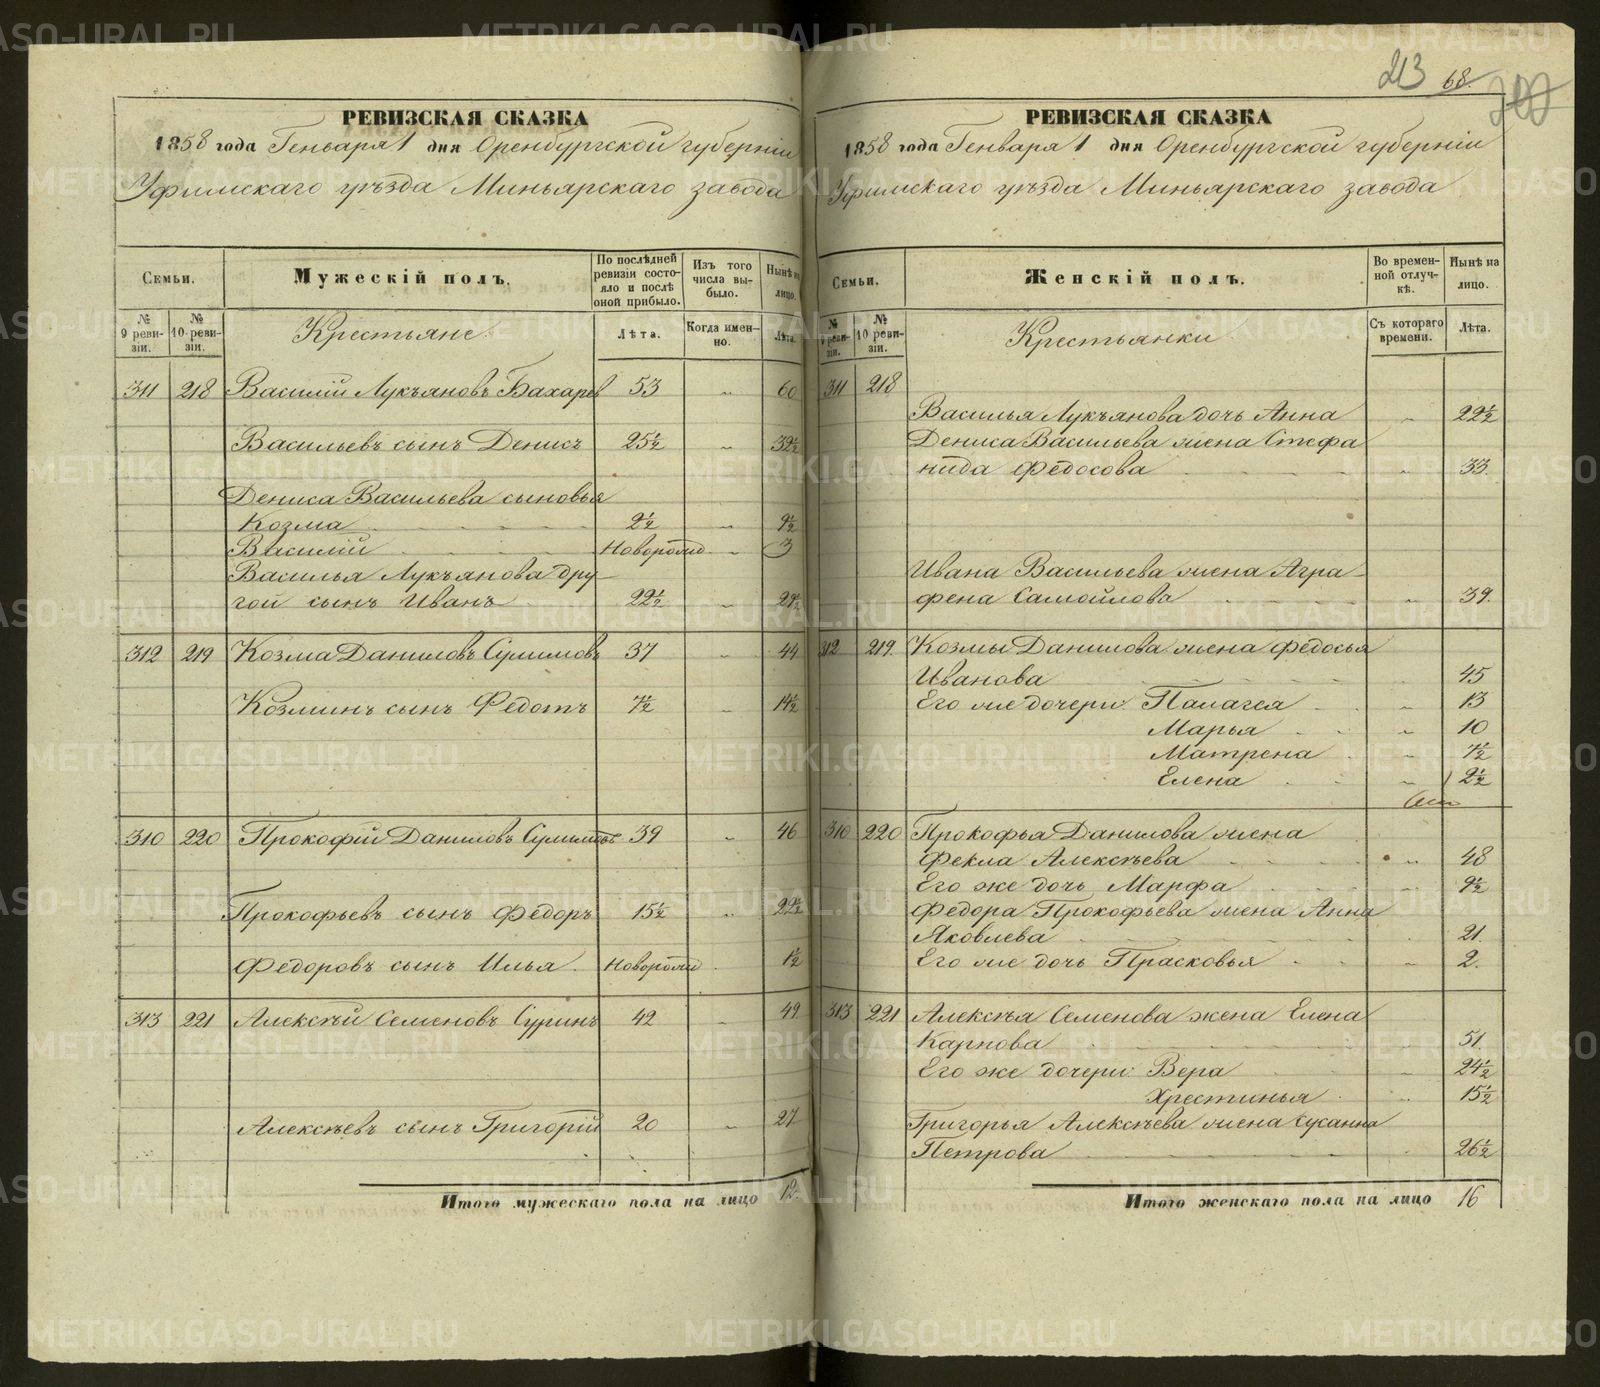 213 68.
РЕВИЗСКАЯ СКАЗКА
1858 года Генваря 1 дня Оренбургской губерніи
Уфимскаго уѣзда Миньярскаго завода
Семьи.
Мужескій полъ.
По послѣдней ревизіи состояло и послѣ оной прибыло.
Изъ того числа выбыло.
Нынѣ на лицо.
№ 9 ревизіи.
№ 10 ревизіи.
Крестьяне.
Лѣта.
Когда именно.
Лѣта.
311 218 Василій Лукъяновъ Бахарев 53 „ 60
Васильевъ сынъ Денисъ 25½ „ 32½
Дениса Васильева сыновья
Козма 2½ „ 9½
Василій Новорожд „ 3
Василья Лукъянова дру-
гой сынъ Иванъ 22½ „ 29½
312 219 Козма Даниловъ Сулимовъ 37 „ 44
Козминъ сынъ Федотъ 7½ „ 14½
310 220 Прокофій Даниловъ Сулимовъ 39 „ 46
Прокофьевъ сынъ Федоръ 15½ „ 22½
Федоровъ сынъ Илья Новорожд „ 1½
313 221 Алексѣй Семеновъ Суринъ 42 „ 49
Алексѣевъ сынъ Григорій 20 „ 27
Итого мужескаго пола на лицо 12.
РЕВИЗСКАЯ СКАЗКА
1858 года Генваря 1 дня Оренбургской губерніи
Уфимскаго уѣзда Миньярскаго завода
Семьи.
Женскій полъ.
Во временной отлучкѣ.
Нынѣ на лицо.
№ 9 ревизіи.
№ 10 ревизіи.
Крестьянки.
Съ котораго времени.
Лѣта.
311 218
Василья Лукъянова дочь Анна „ 22½
Дениса Васильева жена Стефа
нида Федосова „ 33.
Ивана Васильева жена Агра-
фена Самойлова „ 39.
312 219. Козмы Данилова жена Федосья
Иванова „ 45
Его же дочери: Палагея „ 13
Марья „ 10
Матрена „ 7½
Елена „ 2½
310 220 Прокофья Данилова жена
Фекла Алексѣева „ 48
Его же дочь Марфа „ 9½
Федора Прокофьева жена Анна
Яковлева 21.
Его же дочь Прасковья „ 2.
313 221 Алексѣя Семенова жена Елена
Карпова „ 51.
Его же дочери: Вера „ 24½
Хрестинья „ 15½
Григорья Алексѣева жена Сусанна
Петрова „ 26½
Итого женскаго пола на лицо 16
METRIKI.GASO-URAL.RU